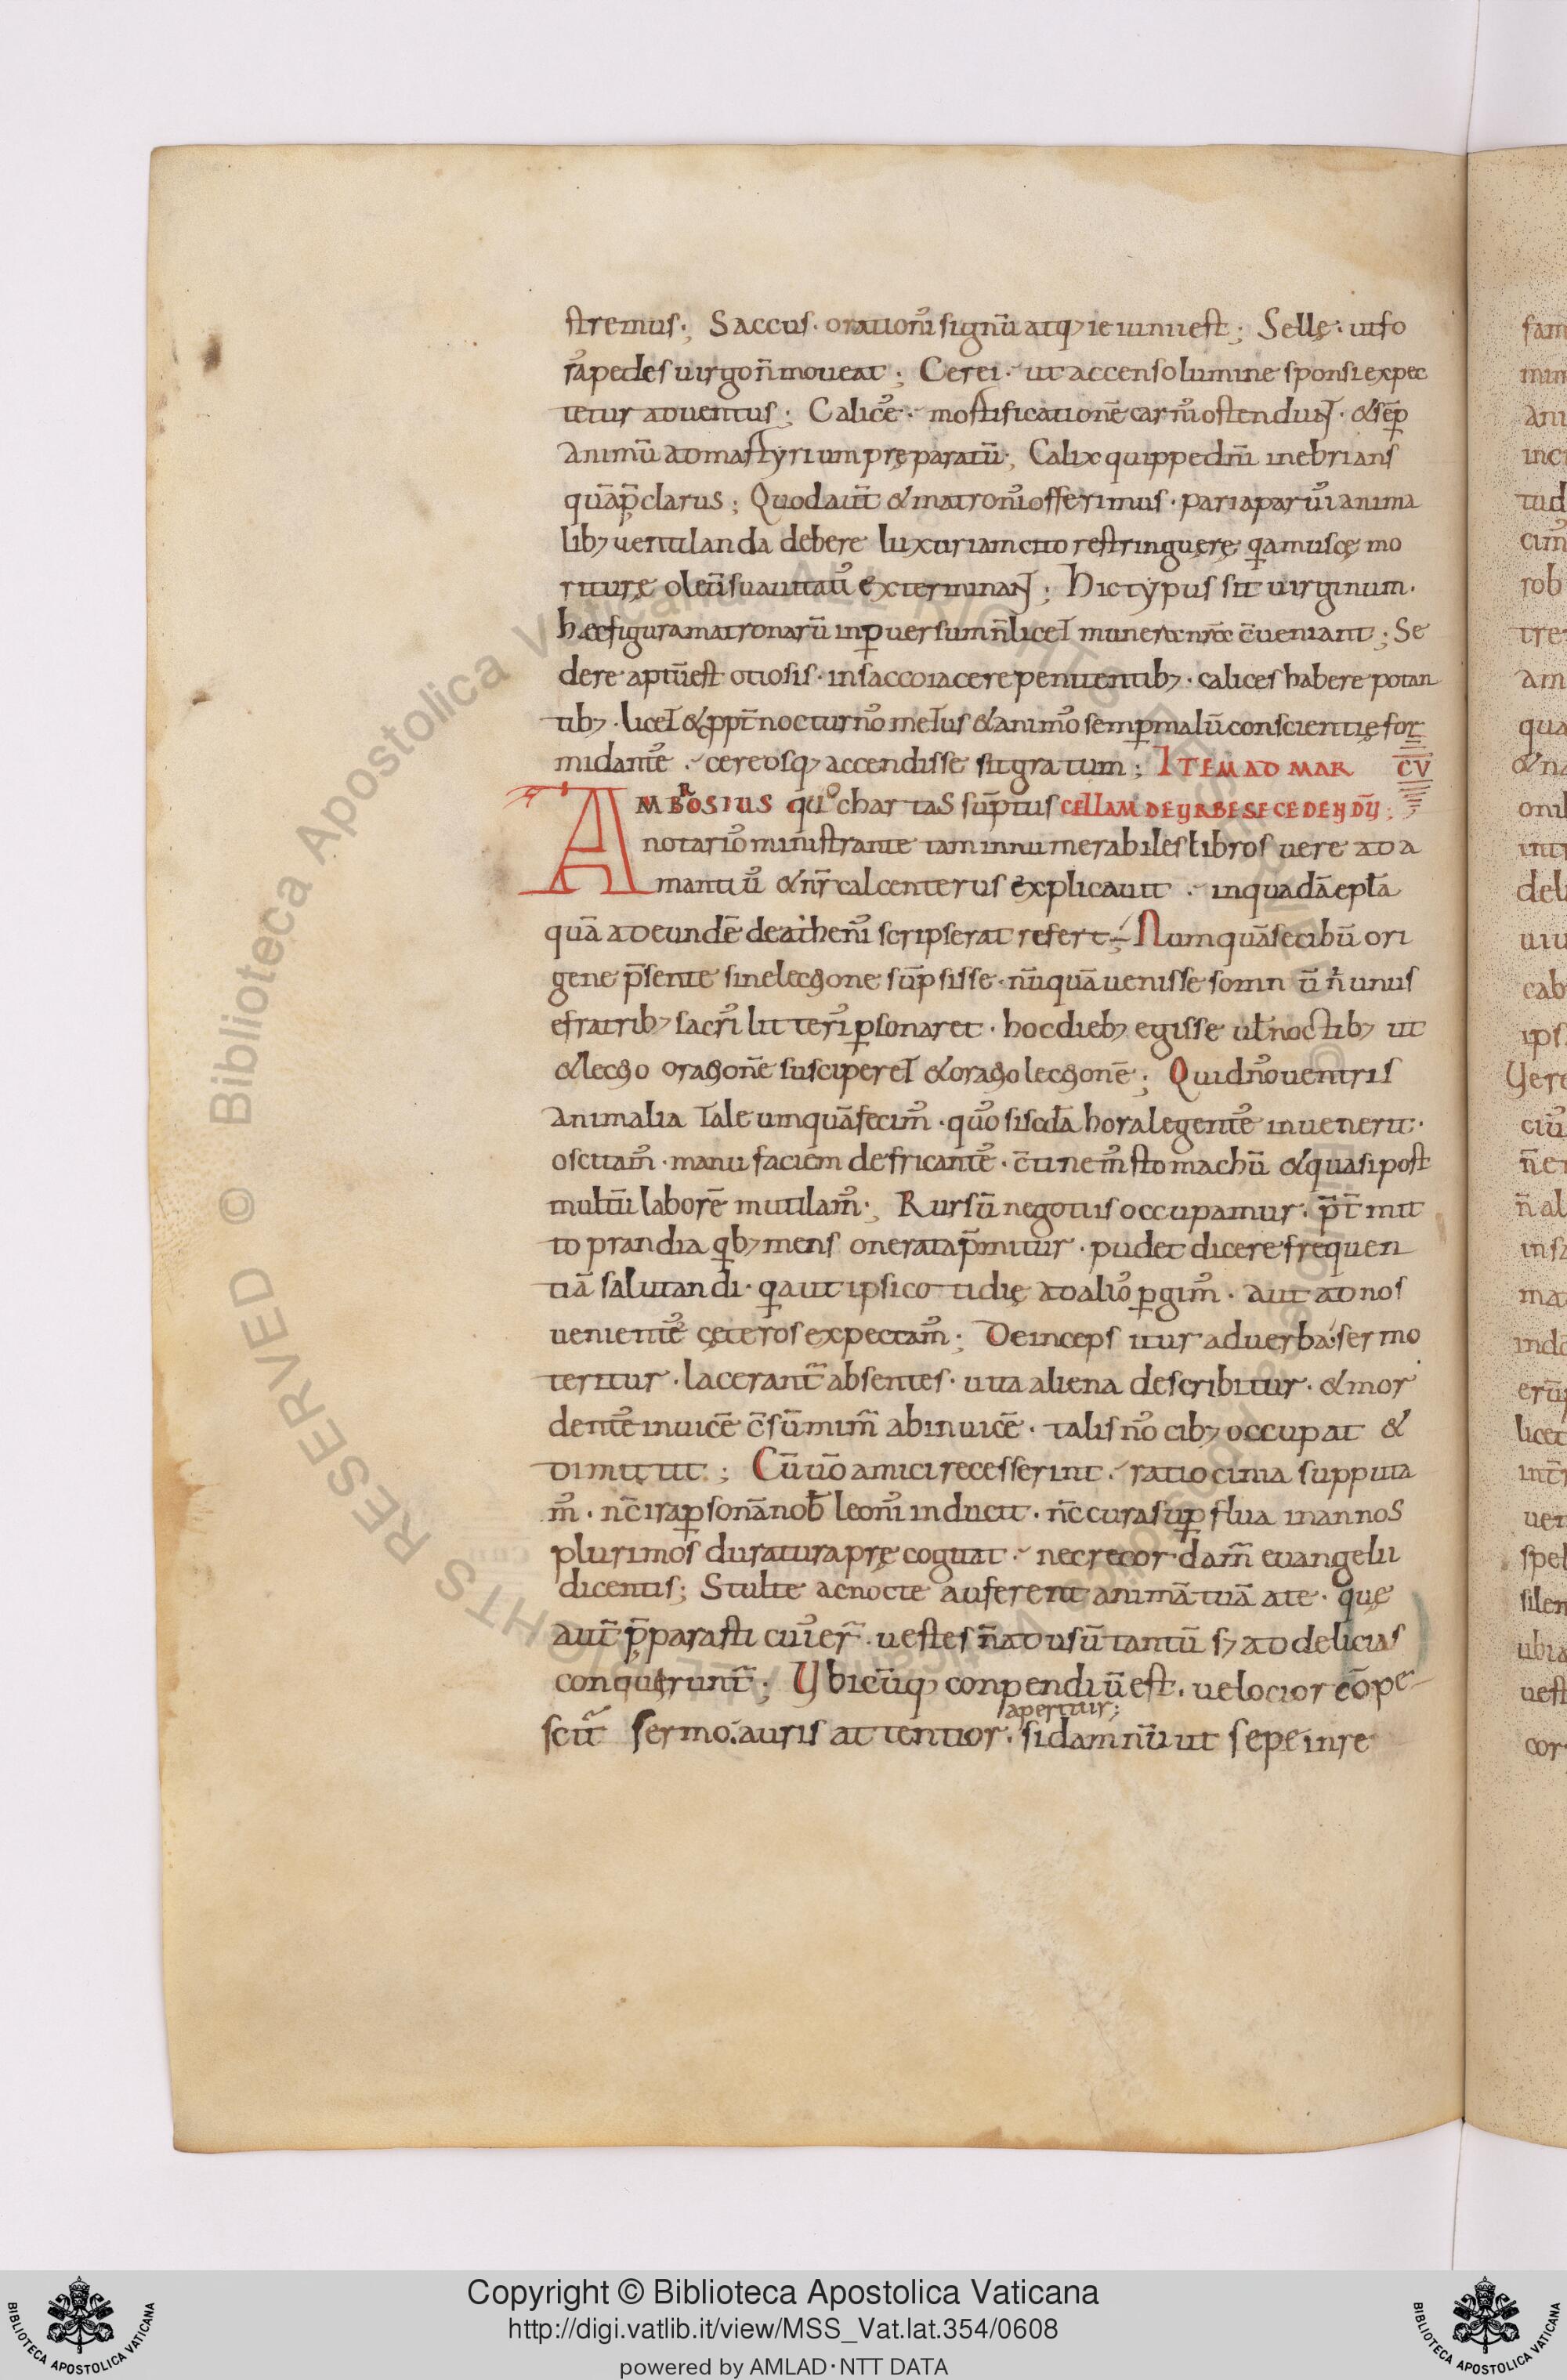 stremus·; Saccus· orationı᷒ signū atq; ieiunii est; Selle̜· ut fo
ra᷒ pedes uirgo n̄ moueat; Cerei·̵ ut accenso lumine sponsi expec
tetur aduentus; Calice᷒·̵ mortificationē carnı᷒ ostendunt· & sēp
animū ad martyrium pre̜paratū; Calix quippe dn̄i inebrians
quā p̄clarus; Quod aut̄ & matronı᷒ offerimus· paria paruı᷒ anima
lib; uentilanda debere luxuriam cito restringuere̜ qa musce̜ mo
riture̜ oleū suauitatı᷒ exterminant; Hic typus sit uirginum·
hec figura matronarū in puersum n̄ licet munera nr̄a c̄ueniant; Se
dere aptū est otiosis· in sacco iacere penitentib;· calices habere potan
tib;· licet & ppt̄ nocturno᷒ metus & animo᷒ semp malū conscientie̜ for
midante᷒·̵ cereosq; accendisse sit gratum; ITEM AD MAR CV
AMBROSIUS quo chartas sūptus CELLAM DE URBE SECEDENDŪ;
notario᷒ ministrante tam innumerabiles libros uere ada
mantinı᷒ & nr̄ calcenterus explicauit·̵ in quadā epl̄a
quā ad eundē de athenı᷒ scripserat refert; Numquā se cibū ori
gene p̄sente sine lectione sūpsisse· nūquā uenisse somnū n̄ unus
e fratrib; sacrı᷒ litterı᷒ psonaret· hoc dieb; egisse ut̄ noctib; ut
& lectio orationē susciperet & oratio lectionē; Quid no᷒ uentris
animalia tale umquā fecim᷒· quo᷒ si scd̄a hora legente᷒ inuenerit·
oscitam᷒· manu faciem defricante᷒· c̄tinem᷒ stomachū & quasi post
multū laborē mutilam᷒; Rursū negotiis occupamur· p̄t̄mit
to prandia qb; mens onerata p̄mitur· pudet dicere frequen
tiā salutandi· qa aut ipsi cotidie̜ ad alio᷒ pgim᷒· aut ad nos
veniente᷒ ce̜teros expectam᷒; Deinceps itur ad uerba· sermo
teritur· lacerant̄ absentes· uita aliena describitur· & mor
dente᷒ inuicē c̄sūmim̄ ab inuicē· talis no᷒ cib; occupat &
dimittit; Cū uo᷒ amici recesserint·̵ ratiocinia supputa
m᷒· nc̄ ira psonā nob̄ leonı᷒ inducit· nc̄ cura supflua in annos
plurimos duratura pre̜cogitat·̵ nec recordam̄ euangelii
dicentis; Stulte ac nocte auferent animā tuā a te· que̜
aut̄ p̄parasti cuı᷒ er̄· uestes n̄ ad usū tantū s; ad delicias
conquirunt̄; Ubicūq; conpendiū est· uelocior pe
apertior;
scit̄ sermo· auris attentior· si damnū ut sepe in re
Copyright © Biblioteca Apostolica Vaticana
http://digi.vatlib.it/view/MSS_Vat.lat.354/0608
powered by AMLAD·NTT DATA